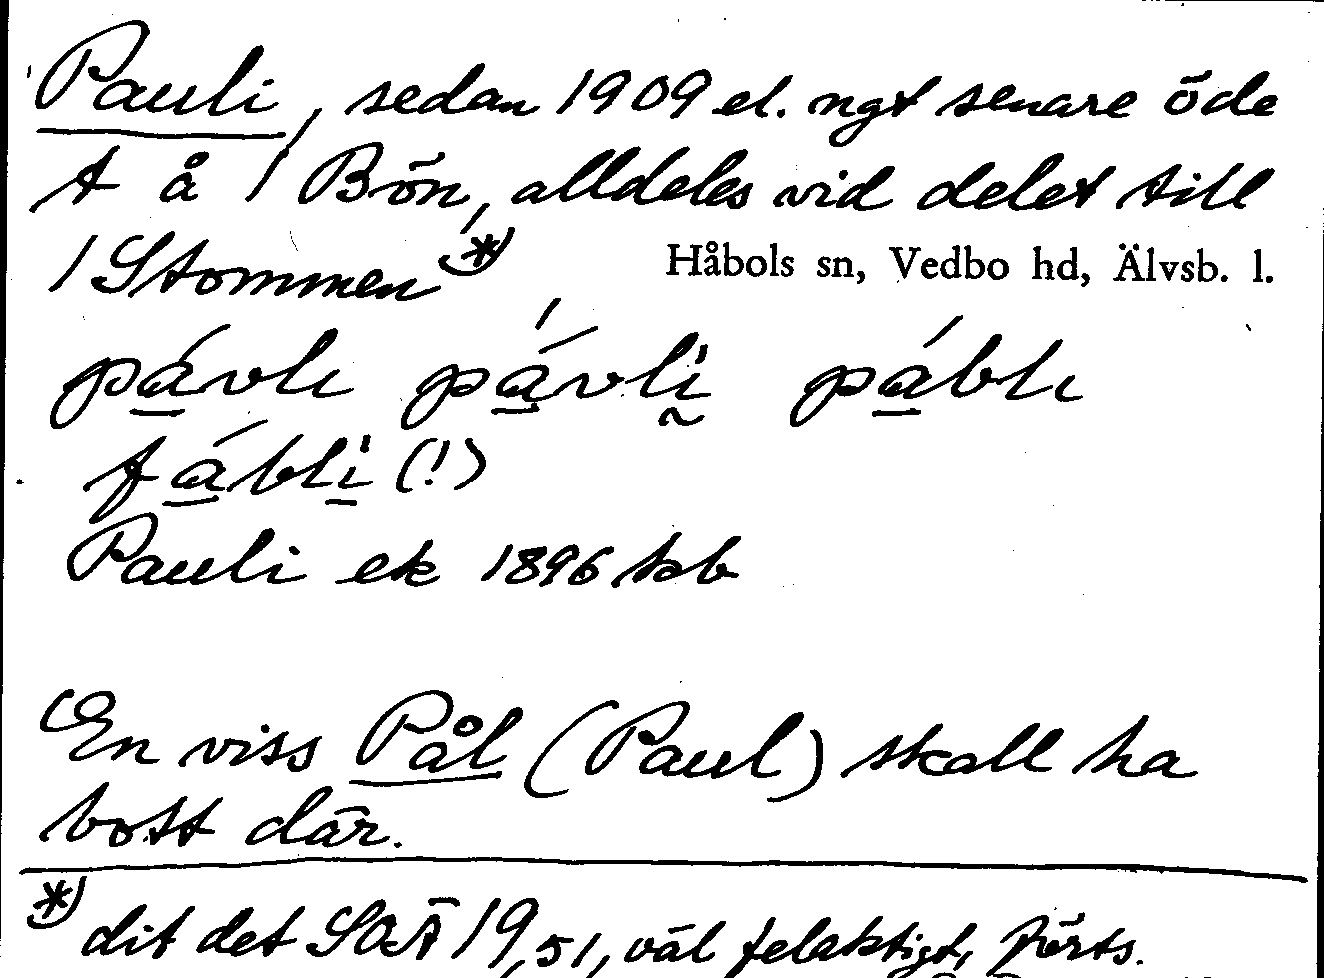 Pauli, sedan 1909 el. ngt senare öde
t å 1 Bön, alldeles vid delet till
1 Stommen *)
Håbols sn, Vedbo hd, Älvsb. l.
pávlı pávli páblı
fábli (!)
Pauli ek 1896 kb
En viss Pål (Paul) skall ha
bott där.
*) dit det SOÄ 19,51, väl felaktigt, förts.